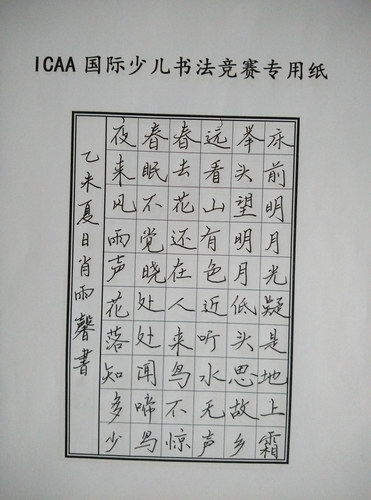 ICAA国际少儿书法竞赛专用纸
床前明月光疑是地上霜
举头望明月低头思故乡
远看山有色近听水无声
春去花还在人来鸟不惊
春眠不觉晓处处闻啼鸟
夜来风雨声花落知多少
乙未夏日肖雨馨書